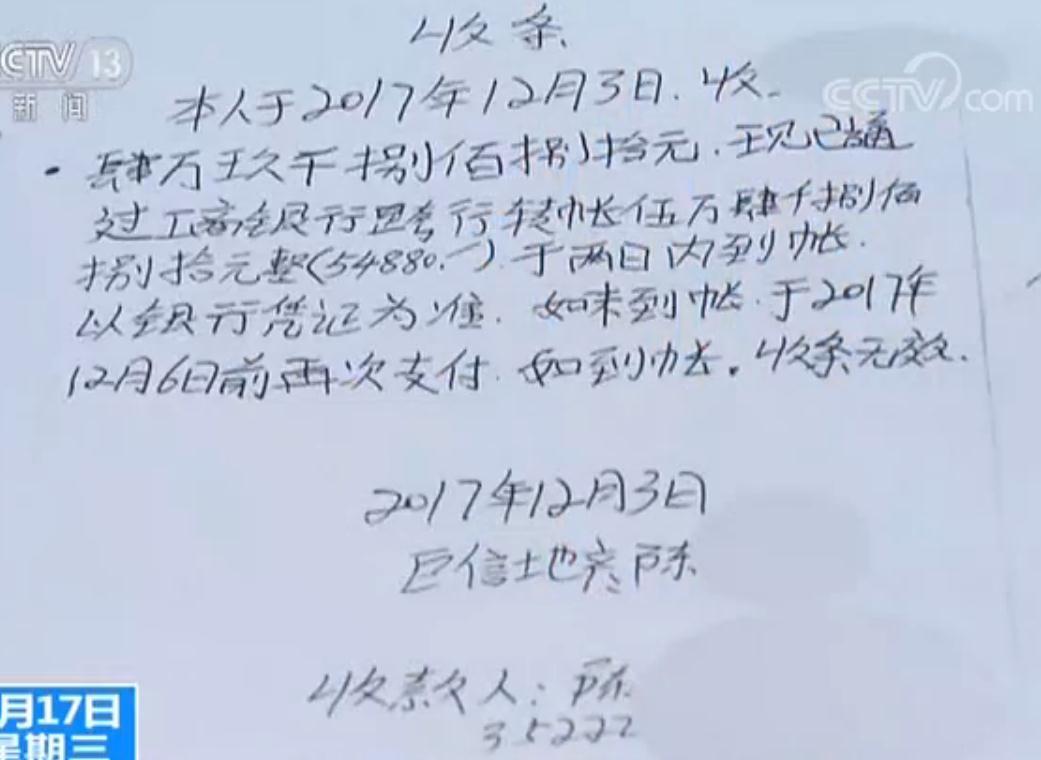 收条
CCTV 13
新闻
本人于2017年12月3日.收
CCTV.com
肆万玖千捌佰捌拾元.现已通
过工商银行跨行转帐伍万肆千捌佰
捌拾元整(54880.-).于两日内到帐.
以银行凭证为准.如未到帐.于2017年
12月6日前再次支付.如到帐.收条无效.
2017年12月3日
巨信地产陈
收款人:陈
35222
月17日
星期三